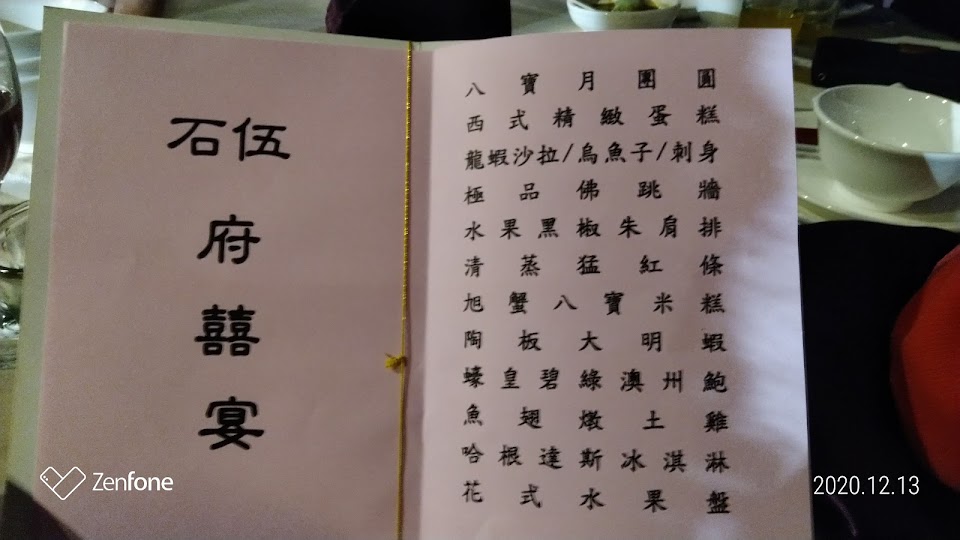 石伍
府
囍
宴
八寶月團圓
西式精緻蛋糕
龍蝦沙拉/烏魚子/刺身
極品佛跳牆
水果黑椒朱肩排
清蒸猛紅條
旭蟹八寶米糕
陶板大明蝦
蠔皇碧綠澳州鮑
魚翅燉土雞
哈根達斯冰淇淋
花式水果盤
Zenfone
2020.12.13